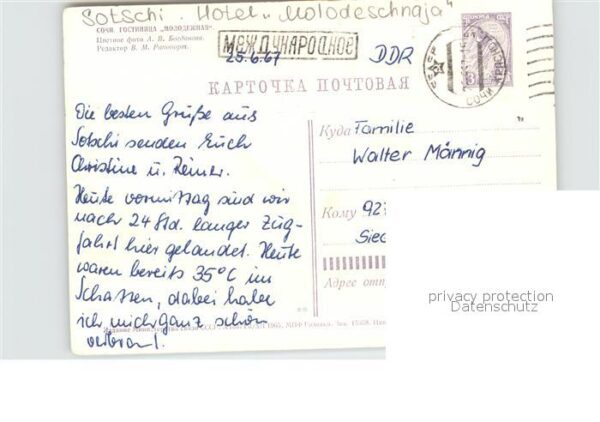 Sotschi Hotel „Molodeschnaja“
СОЧИ. ГОСТИНИЦА „МОЛОДЕЖНАЯ“
Цветное фото А. В. Богданова.
Редактор В. М. Рапопорт.
МЕЖДУНАРОДНОЕ
25.6.67
DDR
СОЧИ
КАРТОЧКА ПОЧТОВАЯ
Die besten Grüße aus
Sotschi senden Euch
Christine u. Reiner.
Heute vormittag sind wir
nach 24 Std. langer Zug-
fahrt hier gelandet. Heute
waren bereits 35°C im
Schatten, dabei habe
ich mich ganz schön
verbrannt.
Куда Familie
Walter Männig
Кому 92
Sie
Адрес отп
privacy protection
Datenschutz